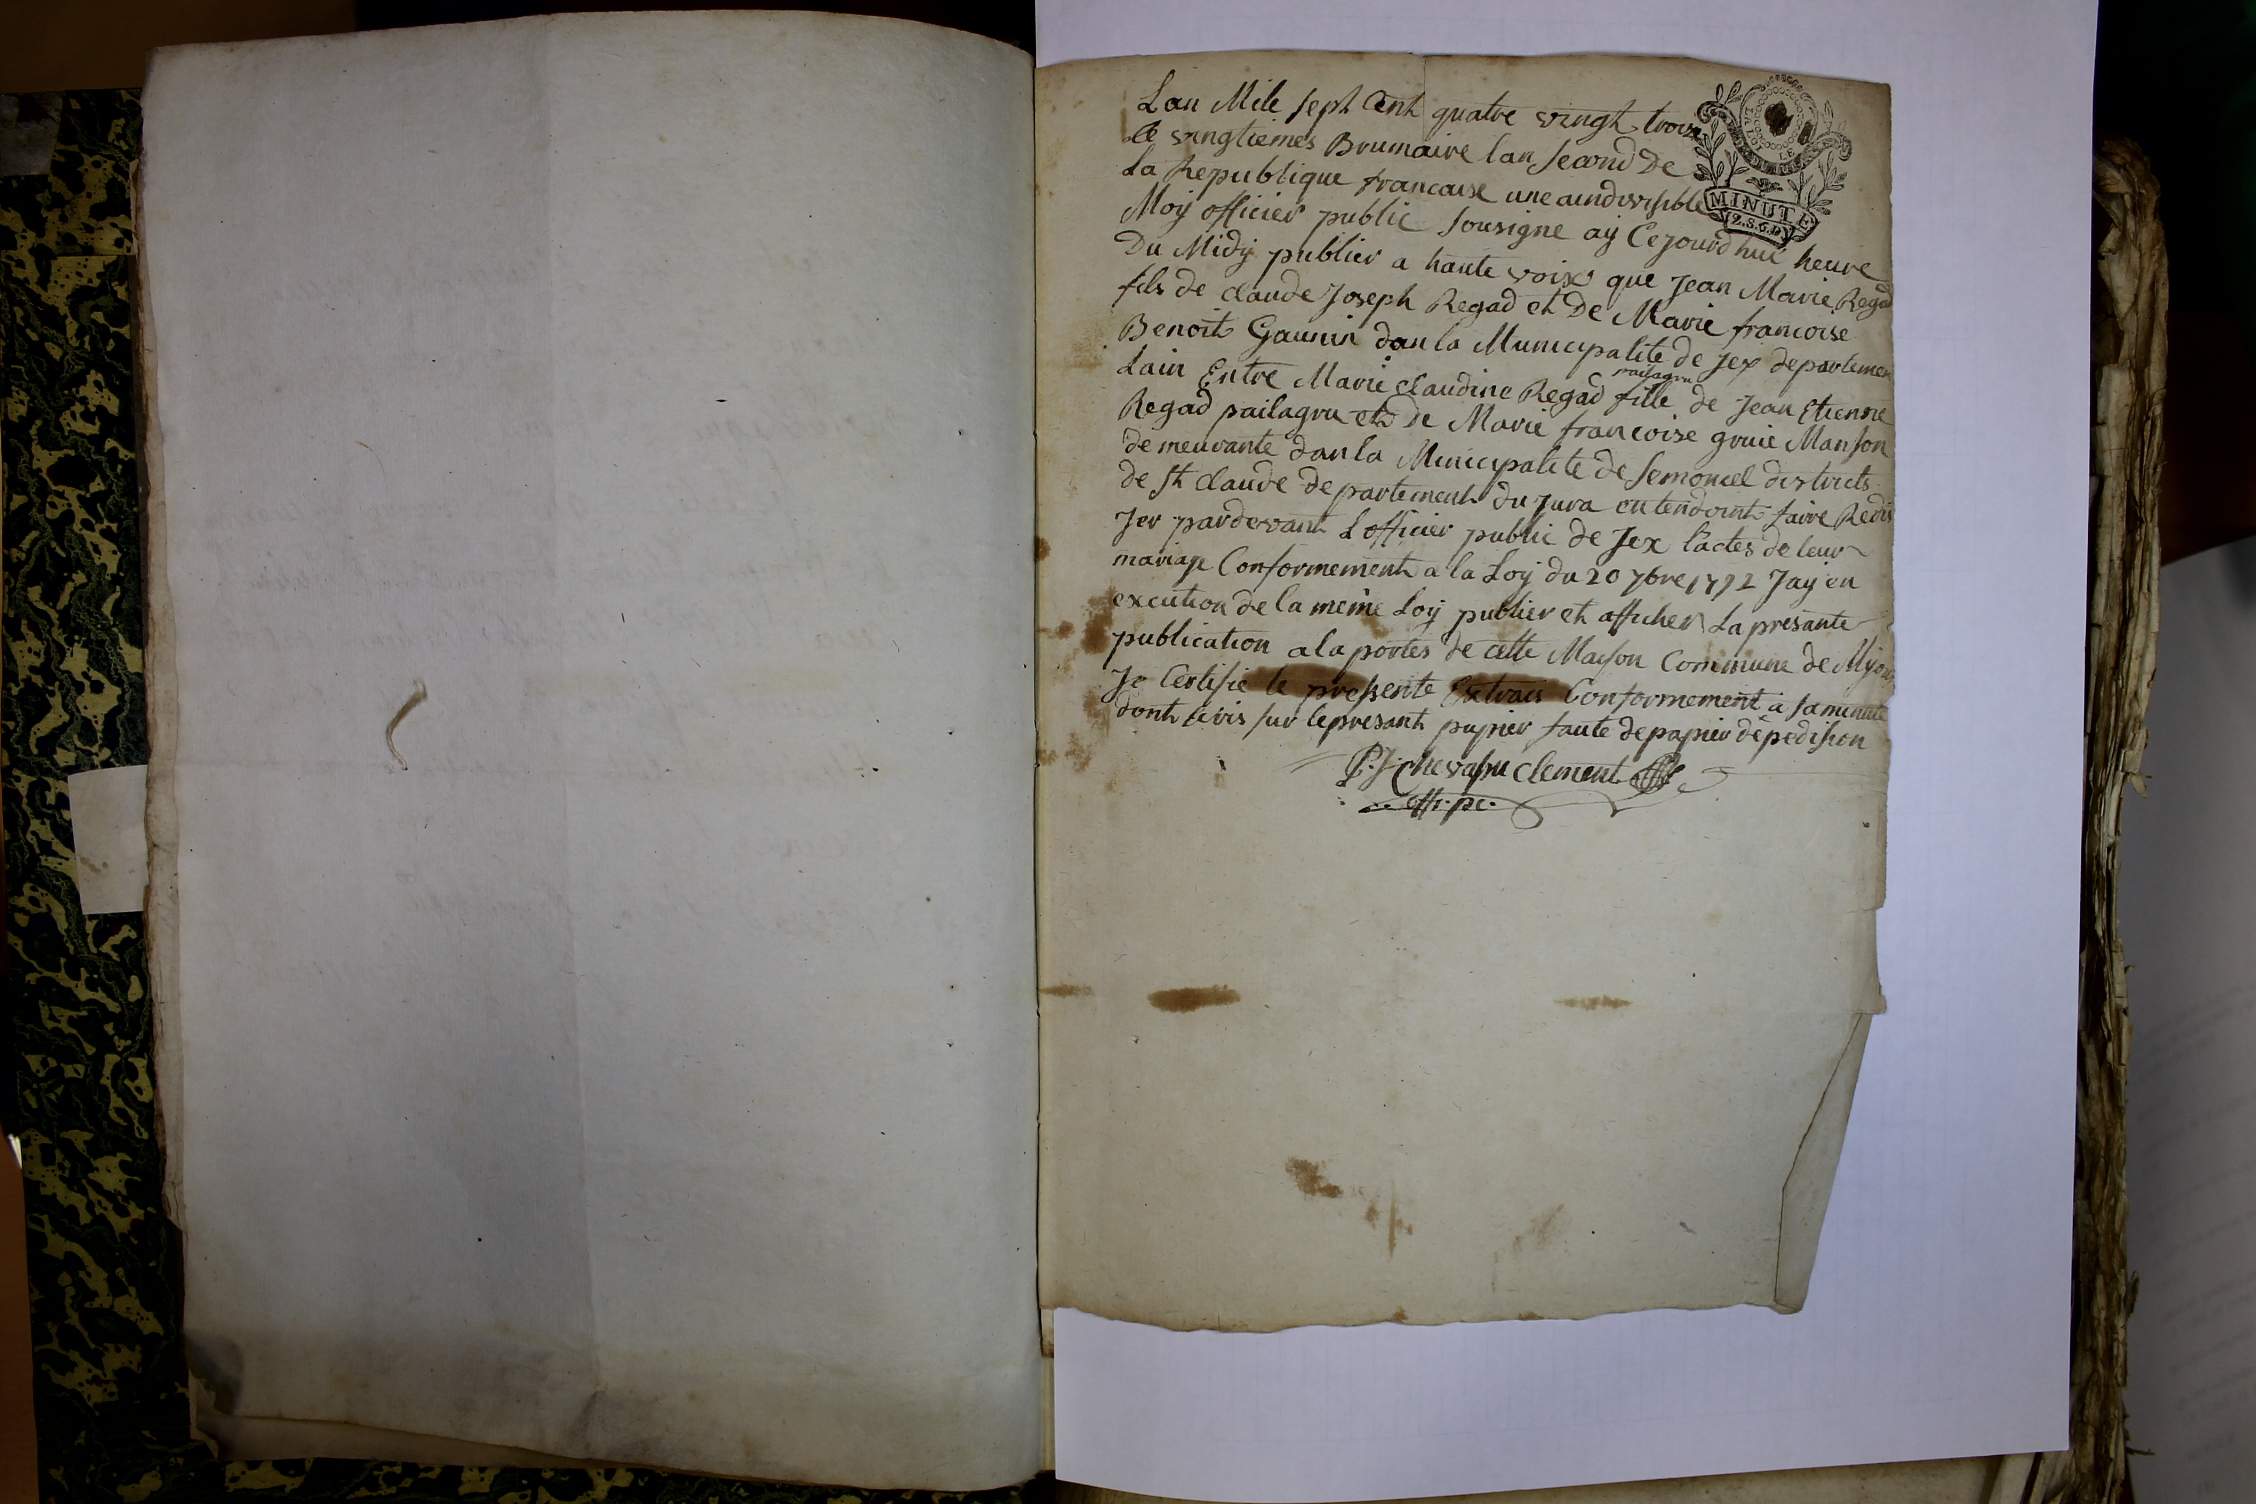 Lan Mile sept Cent quatre vingt troize
Le vingtiemes Brumaire lan second De
La Republique francaise une aindivisible
Moÿ officier public sousigne aÿ Cejourdhui heure
Du Midÿ publier a haute voix que Jean Marie Regad
fils de claude Joseph Regad et De Marie francoise
Benoit Gaunin dan la Municipalite de Jex departemen
Lain Entre Marie claudine Regad pailagru fille de Jean Etienne
Regad pailagru et De Marie francoise gruie Manson
demeurante dan la Municipalite de Semoncel districts
de St claude departement du Jura entendoint faire Redis
Jer pardevant Lofficier public de Jex l'actes de leur
mariage Conformement a la Loÿ du 20 7bre 1792 Jaÿ en
excution de la meme Loÿ publier et afficher La presante
publication a la portes de cette Maison Commune de
Je Certifie le pressente Extrais Conformement a sa minute
dont ecris sur le presant papier faute de papier depedision
P. J. Chevassu Clement
offi. pc.
MINUTE
12.S.6.D
LA LOI
LE